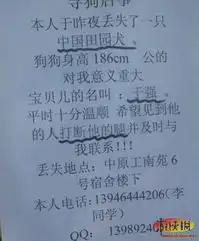 寻狗启事
本人于昨夜丢失了一只
中国田园犬。
狗狗身高186cm 公的
对我意义重大
宝贝儿的名叫：于强。
平时十分温顺 希望见到他
的人打断他的腿并及时与
我联系!!!
丢失地点：中原工南苑6
号宿舍楼下
本人电话:13946444206(李
同学)
QQ: 13989240